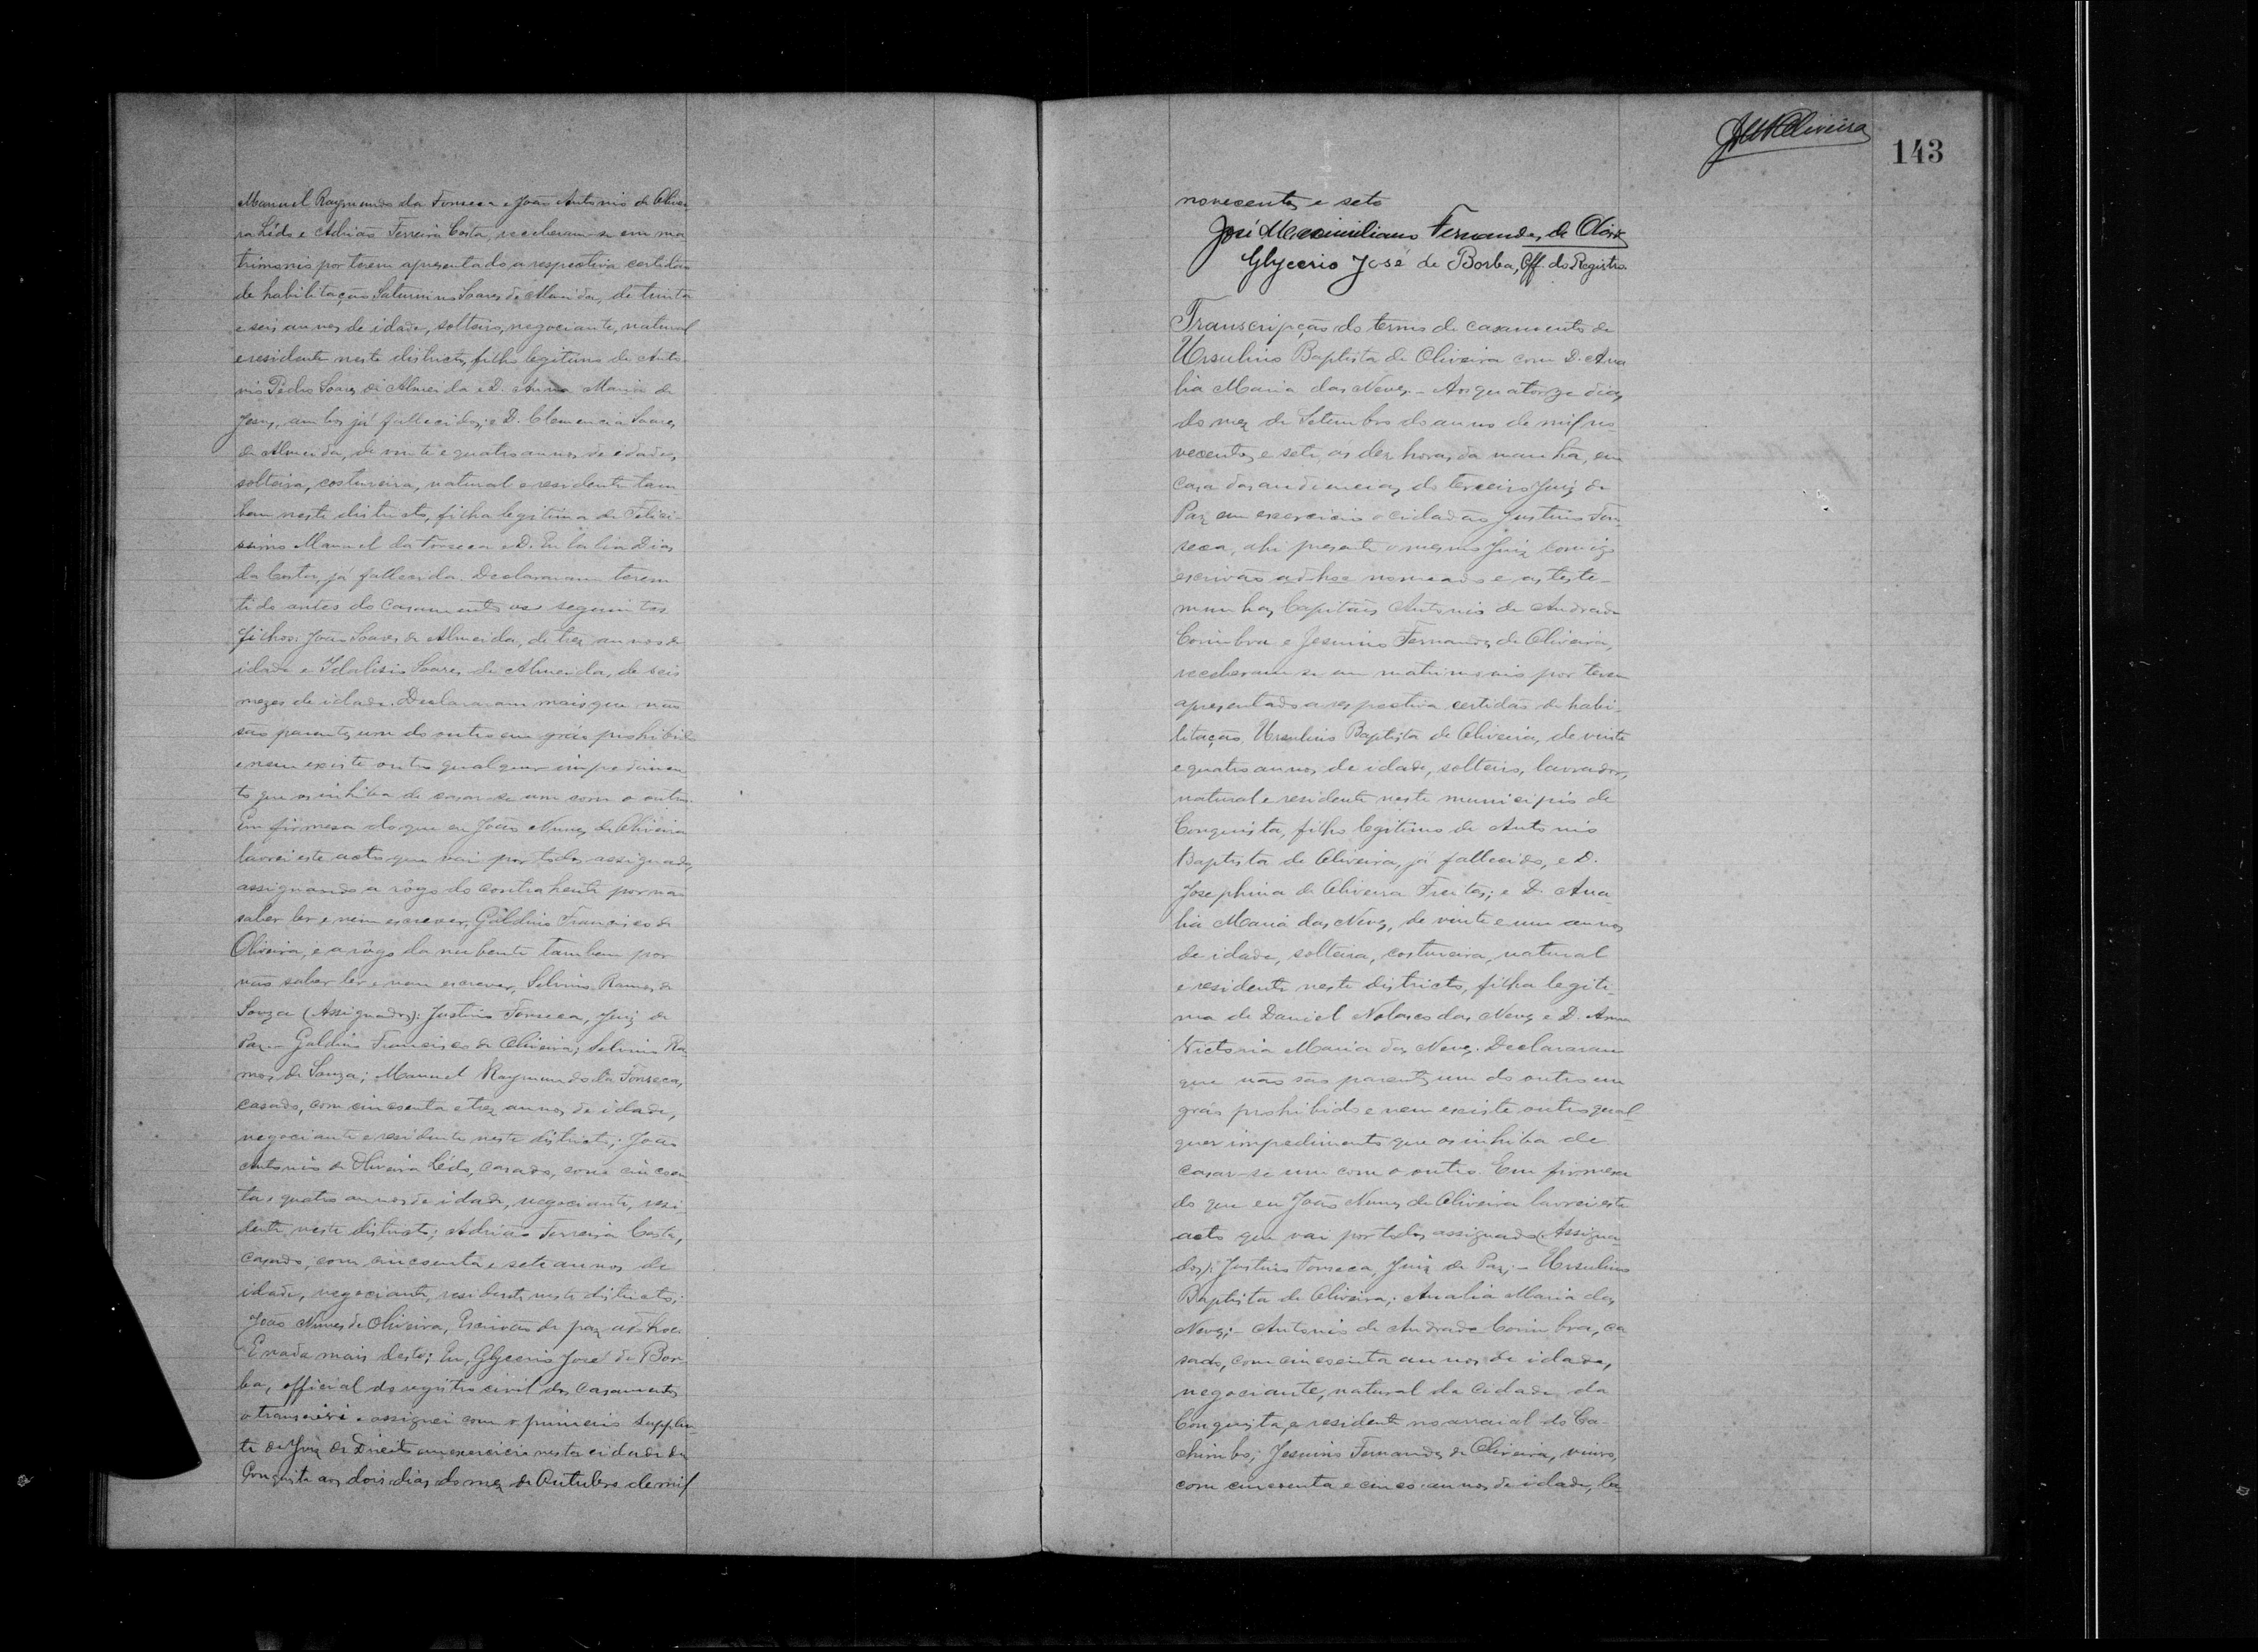 Manuel Raymundo da Fonseca e João Antonio de Olivei-
ra Lédo e Adrião Ferreira Costa, receberam-se em ma
trimonio por terem apresentado a respectiva certidão
de habilitação Saturnino Soares de Almeida, de trinta
e seis annos de idade, solteiro, negociante, natural
e residente neste districto, filho legitimo de Anto-
nio Pedro Soares de Almeida e D. Anna Maria de
Jesus, ambos já fallecidos; e D. Clemencia Soares
de Almeida, de vinte e quatro annos de idade,
solteira, costureira, natural e residente tam
bem neste districto, filha legitima de Felici-
ssimo Manuel da Fonseca e D. Eulalia Dias
da Costa, já fallecida. Declararam terem
tido antes do casamento os seguintes
filhos: João Soares de Almeida, de tres annos de
idade e Idalisio Soares de Almeida, de seis
mezes de idade. Declararam mais que não
são parentes um do outro em gráo prohibido
e nem existe outro qualquer impedimen
to que os inhiba de casar-se um com o outro.
Em firmesa do que eu João Nunes de Oliveira
lavrei este acto que vai por todos assignado,
assignando a rôgo do contrahente por não
saber ler e nem escrever, Galdino Francisco de
Oliveira, e a rôgo da nubente tambem por
não saber ler e nem escrever, Silvino Ramos de
Souza (Assignados): Justino Fonseca, Juiz de
Paz. - Galdino Francisco de Oliveira; Silvino Ra-
mos de Souza; Manuel Raymundo da Fonseca,
casado, com cincoenta e tres annos de idade,
negociante e residente neste districto; João
Antonio de Oliveira Lédo, casado, com cincoen
ta e quatro annos de idade, negociante, resi-
dente neste districto; Adrião Ferreira Costa,
casado, com cincoenta e sete annos de
idade, negociante, residente neste districto;
João Nunes de Oliveira, Escrivão de paz ad-hoc.
E nada mais deste; Eu, Glycerio José de Bor-
ba, official do registro civil dos casamentos
o transcrevi e assignei com o primeiro supplen-
te do Juiz de Direito em exercicio nesta cidade da
Conquista aos dois dias do mez de Outubro de mil
JMFOliveira
143
novecentos e sete
José Maximiliano Fernandes de Oliv.ra
Glycerio José de Borba, Off. do Registro.
Transcripção do termo de casamento de
Ursulino Baptista de Oliveira com D. Ana
lia Maria das Neves. - Aos quatorze dias
do mez de Setembro do anno de mil no-
vecentos e sete, ás dez horas da manhã, em
casa das audiencias do terceiro Juiz de
Paz em exercicio o cidadão Justino Fon-
seca, ahi presente o mesmo Juiz comigo
escrivão ad-hoc nomeado e as teste-
munhas Capitão Antonio de Andrade
Coimbra e Jesuino Fernandes de Oliveira,
receberam-se em matrimonio por terem
apresentado a respectiva certidão de habi-
litação, Ursulino Baptista de Oliveira, de vinte
e quatro annos de idade, solteiro, lavrador,
natural e residente neste municipio de
Conquista, filho legitimo de Antonio
Baptista de Oliveira, já fallecido, e D.
Josephina de Oliveira Freitas; e D. Ana-
lia Maria das Neves, de vinte e um annos
de idade, solteira, costureira, natural
e residente neste districto, filha legiti-
ma de Daniel Nolasco das Neves e D. Anna
Victoria Maria das Neves. Declararam
que não são parentes um do outro em
gráo prohibido e nem existe outro qual-
quer impedimento que os inhiba de
casar-se um com o outro. Em firmesa
do que eu João Nunes de Oliveira lavrei este
acto que vai por todos assignado (Assigna-
dos): Justino Fonseca, Juiz de Paz; - Ursulino
Baptista de Oliveira; Analia Maria das
Neves; - Antonio de Andrade Coimbra, ca
sado, com cincoenta annos de idade,
negociante, natural da cidade da
Conquista, e residente no arraial do Ca-
chimbo; Jesuino Fernandes de Oliveira, viuvo,
com cincoenta e cinco annos de idade, la-